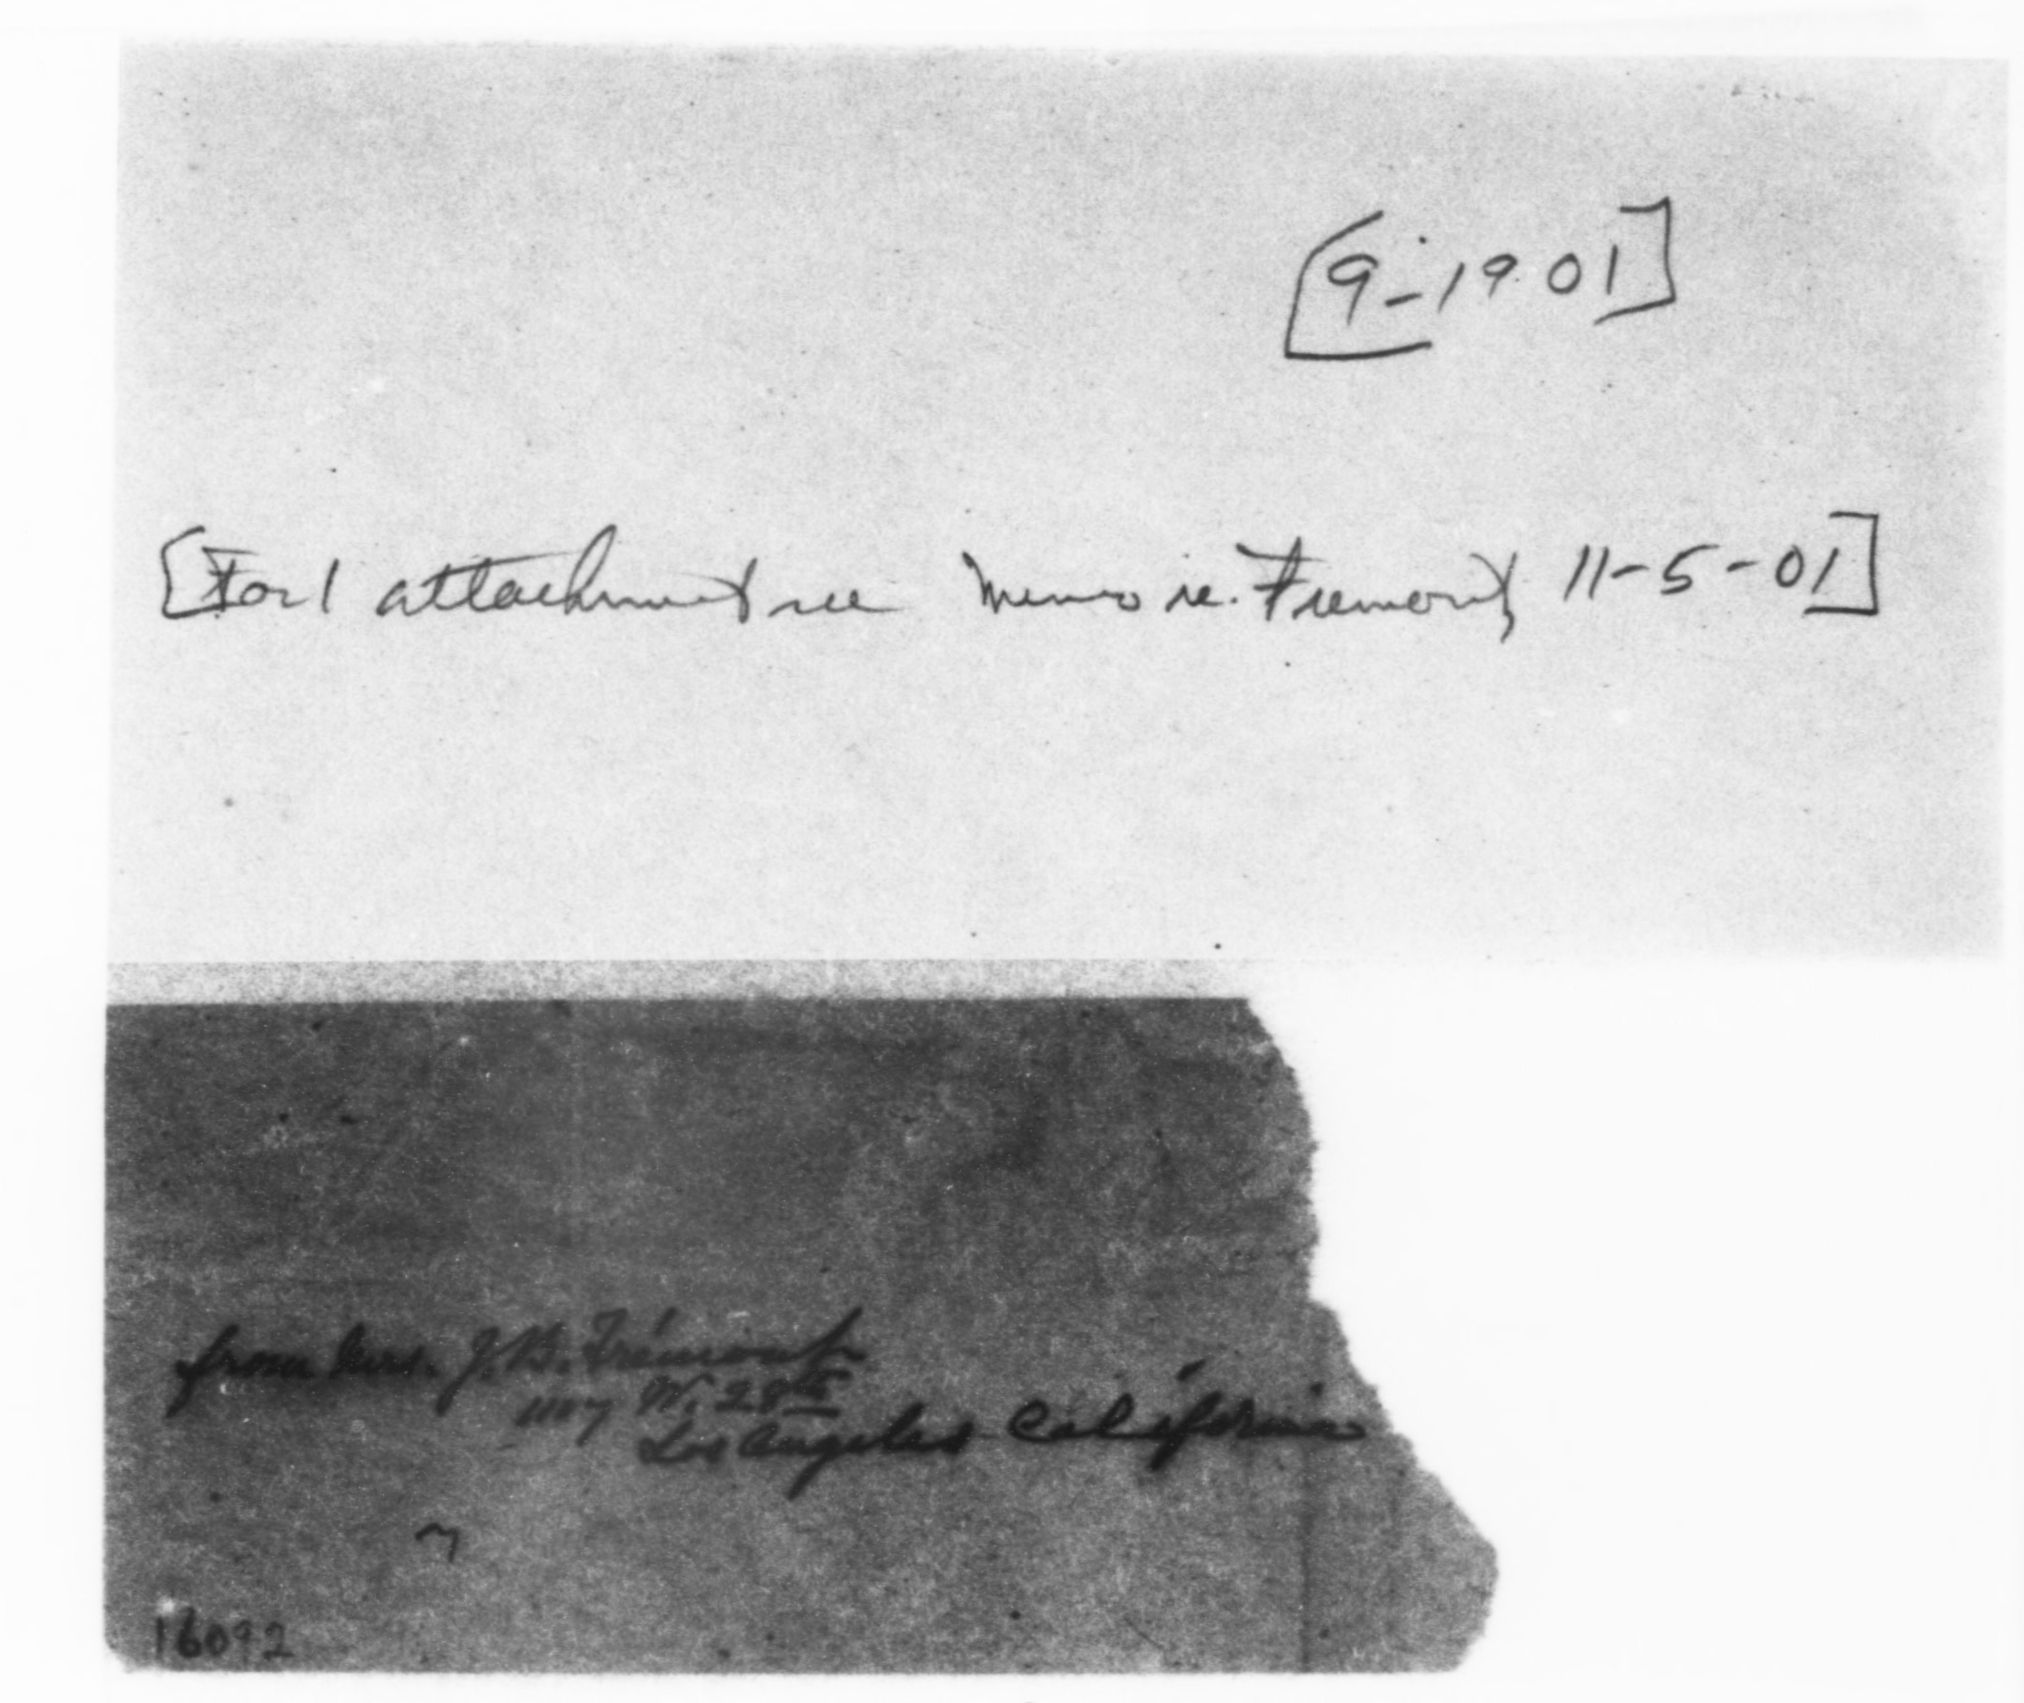 [9-19-01]
[For 1 attachment see Memo re. Fremont, 11-5-01]
from Mrs. J. B. Frémont
1107 W. 28th
Los Angeles California
16092